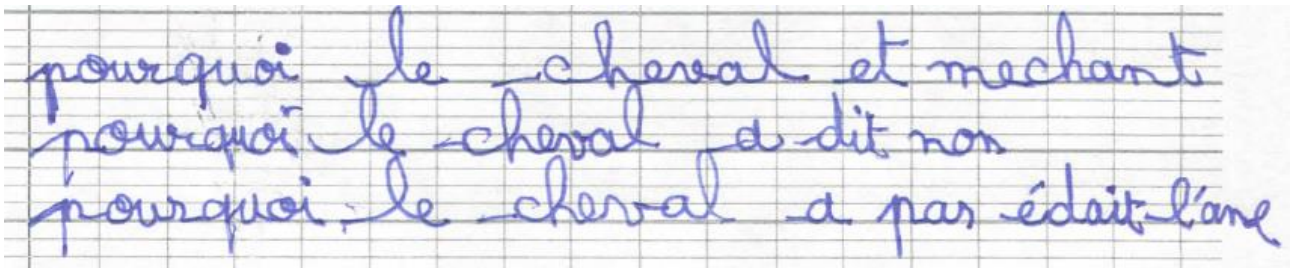 pourquoi le cheval et mechant
pourquoi le cheval a dit non
pourquoi le cheval a pas édait l'ane